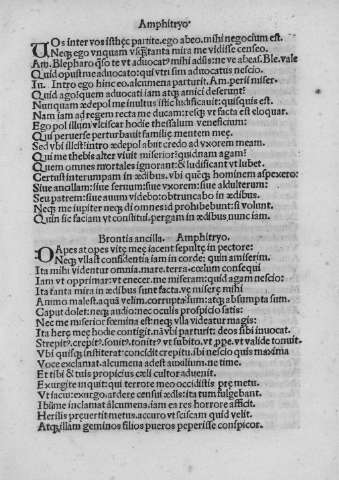 Amphitryo
VOs inter vos isthęc partite.ego abeo.mihi negocium est.
Neq; ego vnquam vsq̃tanta mira me vidisse censeo.
Am. Blepharo q̃so te vt aduocatꝰ mihi adsis:ne ve abeas. Ble. vale
Quid opust me aduocato:qui vtri sim aduocatus nescio.
Iu. Intro ego hinc eo. alcumena parturit. Am. perii miser.
Quid ago: quem aduocati iam atq; amici deserunt?
Nunquam ædepol me inultus istic ludificauit: quisquis est.
Nam iam ad regem recta me ducam: resq; vt facta est eloquar.
Ego pol illum vlciscar hodie thessalum veneficum:
Qui peruerse perturbauit familię mentem meę.
Sed vbi illest: intro ædepol abiit credo ad vxorem meam.
Qui me thebis alter viuit miserior? quid nam agam?
Quem omnes mortales ignorant: & ludificant vt lubet.
Certust interumpam in ædibus. vbi quēq; hominem aspexero:
Siue ancillam: siue seruum: siue vxorem: siue adulterum:
Seu patrem: siue auum videbo: obtruncabo in ædibus.
Neq; me iupiter neq; di omnes id prohibebunt: si volunt.
Quin sic faciam vt constitui. pergam in ædibus nunc iam.
Brontia ancilla. Amphitryo.
SPes atq̃ opes vitę meę iacent sepultę in pectore:
Neq; vllast confidentia iam in corde: quin amiserim.
Ita mihi videntur omnia. mare. terra. cœlum consequi
Iam vt opprimar: vt enecer. me miseram: quid agam nescio:
Ita tanta mira in ædibus sunt facta. ve miserę mihi
Animo malest. aquā velim. corrupta sum: atq; absumpta sum.
Caput dolet: neq; audio: nec oculis prospicio satis:
Nec me miserior fœmina est: neq; vlla videatur magis:
Ita herę meę hodie contigit. nā vbi parturit: deos sibi inuocat.
Strepitꝰ. crepitꝰ. sonitꝰ. tonitrꝰ vt subito. vt ꝓpe. vt valide tonuit.
Vbi quisq; institerat: concidit crepitu. ibi nescio quis maxima
Voce exclamat. alcumena adest auxilium. ne time.
Et tibi & tuis propicius cœli cultor aduenit.
Exurgite inquit: qui terrore meo occidistis prę metu.
Vt iacui: exurgo. ardere censui ædis: ita tum fulgebant.
Ibi me inclamat alcumena. iam ea res horrore afficit.
Herilis preuertit metus. accuro vt sciscam quid velit.
Atq; illam geminos filios pueros peperisse conspicor.